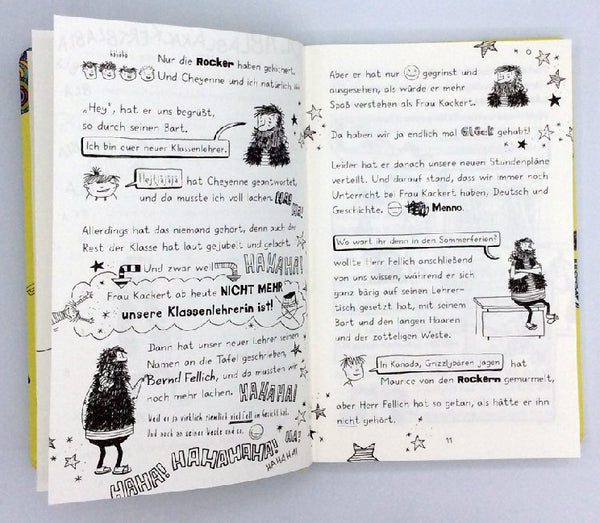 hahaha
Nur die Rocker haben gekichert.
Und Cheyenne und ich natürlich.
„Hey", hat er uns begrüßt,
so durch seinen Bart.
Ich bin euer neuer Klassenlehrer.
Hejtjäjäjä hat Cheyenne geantwortet,
und da musste ich voll lachen.
Allerdings hat das niemand gehört, denn auch der
Rest der Klasse hat laut gejubelt und gelacht.
Und zwar weil HAHAHA!
Frau Kackert ab heute NICHT MEHR
unsere Klassenlehrerin ist!
Dann hat unser neuer Lehrer seinen
Namen an die Tafel geschrieben,
Bernd Fellich, und da mussten wir
noch mehr lachen. HAHAHA!
Weil er so wirklich ziemlich viel Fell im Gesicht hat.
Und auch an seiner Weste und so.
HA!
HAHA! HAHAHAHA!
HAHAHA!
Aber er hat nur gegrinst und
ausgesehen, als würde er mehr
Spaß verstehen als Frau Kackert.
Da haben wir ja endlich mal Glück gehabt!
Leider hat er danach unsere neuen Stundenpläne
verteilt. Und darauf stand, dass wir immer noch
Unterricht bei Frau Kackert haben, Deutsch und
Geschichte. Menno.
Wo wart ihr denn in den Sommerferien?
wollte Herr Fellich anschließend
von uns wissen, während er sich
ganz bärig auf seinen Lehrer-
tisch gesetzt hat, mit seinem
Bart und den langen Haaren
und der zotteligen Weste.
In Kanada, Grizzlybären jagen hat
Maurice von den Rockern gemurmelt,
aber Herr Fellich hat so getan, als hätte er ihn
nicht gehört.
11